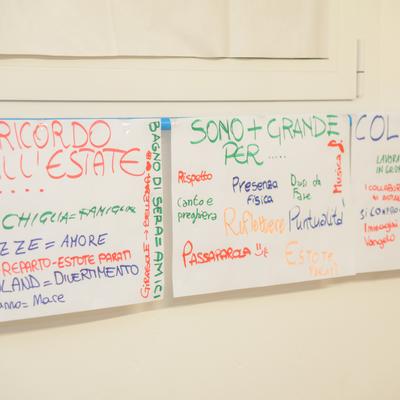 RICORDO
LL'ESTATE
.....
CHIGLIA = FAMIGLIA
ZZE = AMORE
REPARTO - ESTOTE PARATI
LAND = DIVERTIMENTO
= Mare
GIRASOLE → BELLEZZA
BAGNO DI SERA = AMICI
SONO + GRANDE
PER .....
Rispetto
Presenza
fisica
Dasi da
fare
Musica
Canto e
preghiera
Riflettere
Puntualità
PASSAPAROLA
ESTOTE
PARATI
COL
LAVORA
IN GRUP
I COLLABOR
SI CONFRO
Immagini
Vangelo